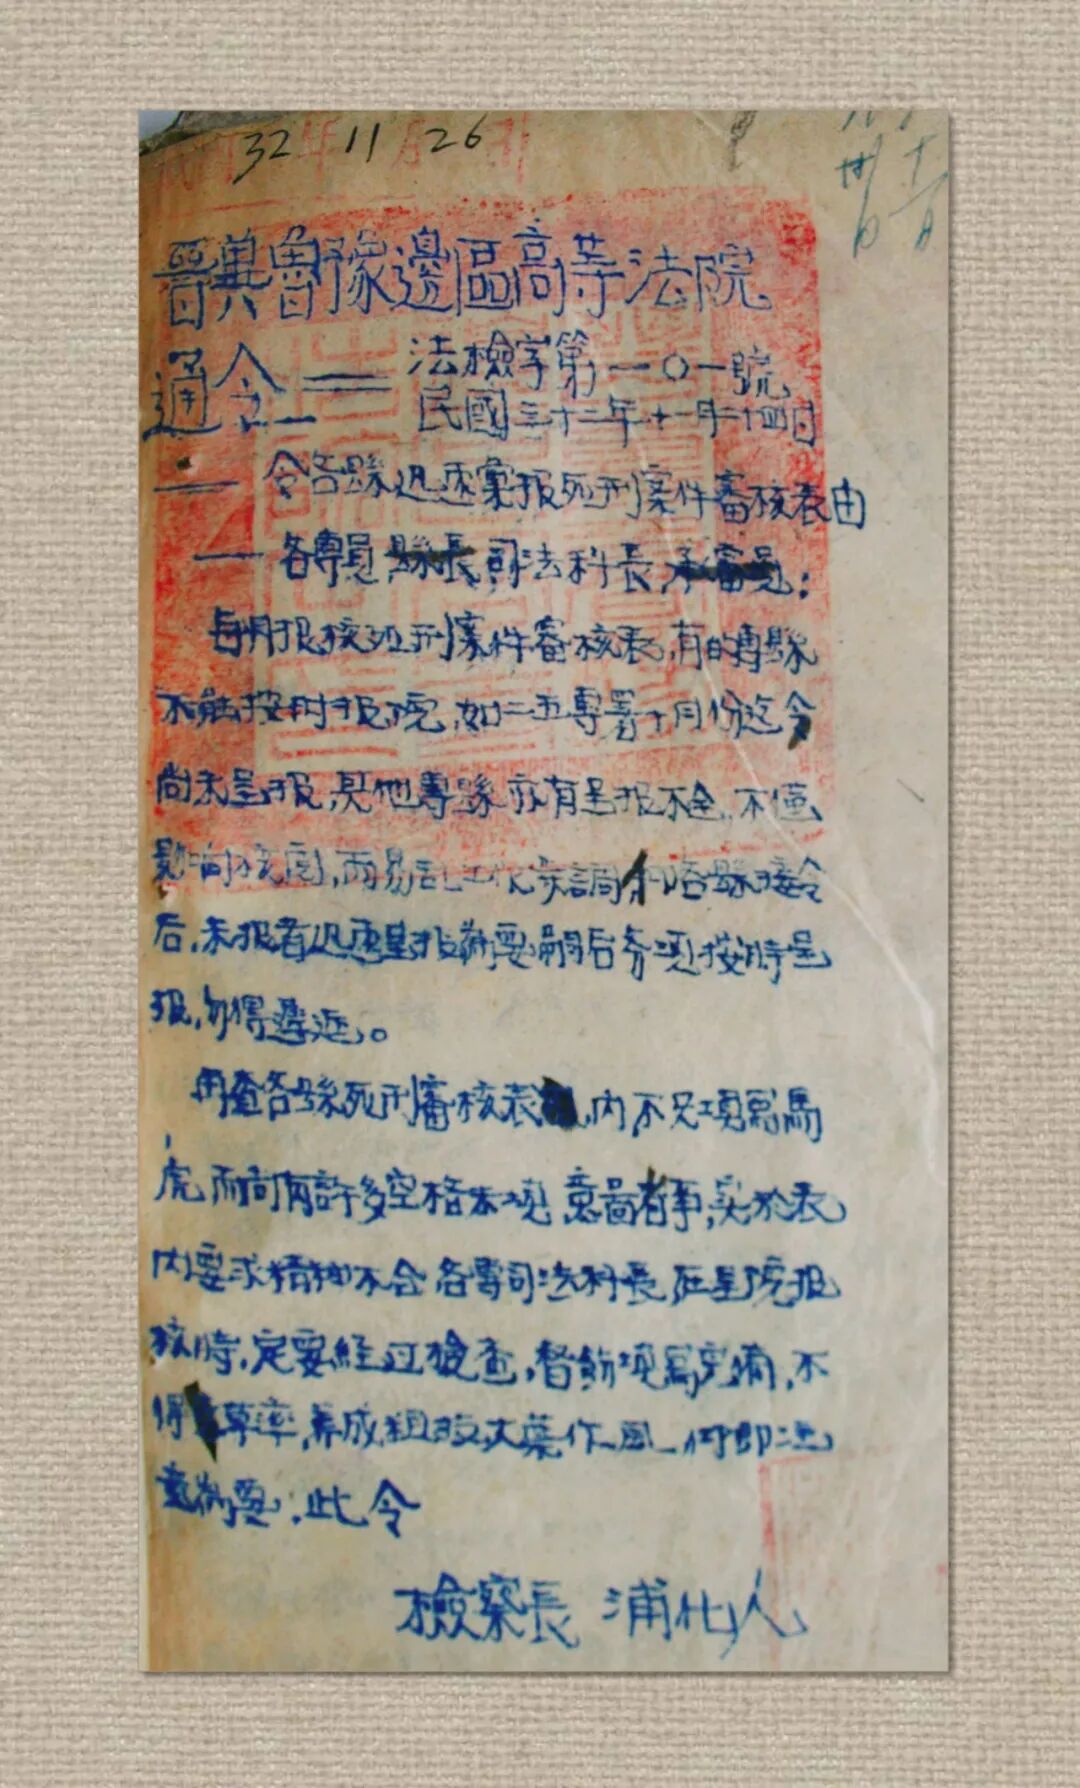 32 11 26
晉冀魯豫邊區高等法院
通令 法檢字第一〇一號
民國三十二年十一月二十四日
令各縣迅速彙报死刑案件審核表由
各專員縣長司法科長承審員:
每月报核死刑案件審核表,有的專縣
不能按时报院,如二五專署十月份迄今
尚未呈报,其他專縣亦有呈报不全,不僅
影响核閱,而易乱工作步調,各縣接令
后,未报者迅速呈报為要嗣后务須按時呈
报,勿得遲延。
再查各縣死刑審核表,内不只填寫馬
虎,而尚有許多空格未填,意啚省事,实於表
内要求精神不合各署司法科長在呈院报
核時,定要経过檢查,督飭填寫完備,不
得草率,养成粗枝大葉作風,仰即注
意為要.此令
檢察長 浦化人